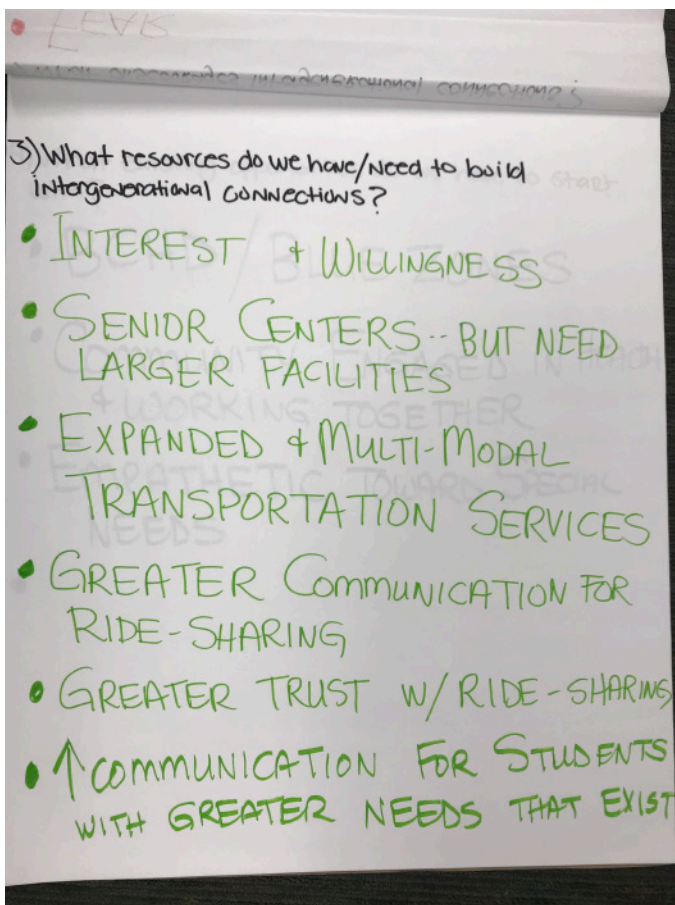 • FEAR
intergenerational connections
3) What resources do we have/need to build
intergenerational connections?
• INTEREST + WILLINGNESS
• SENIOR CENTERS.. BUT NEED
LARGER FACILITIES
• EXPANDED + MULTI-MODAL
TRANSPORTATION SERVICES
• GREATER COMMUNICATION FOR
RIDE-SHARING
• GREATER TRUST W/ RIDE-SHARING
• ↑ COMMUNICATION FOR STUDENTS
WITH GREATER NEEDS THAT EXIST